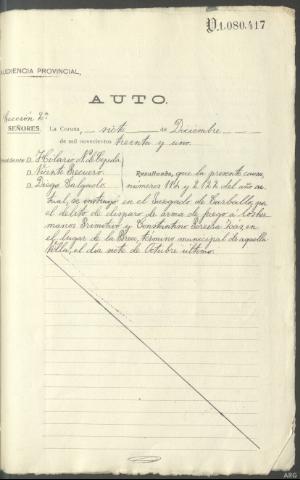 P.1.080.417
AUDIENCIA PROVINCIAL,
AUTO.
Sección 2ª
SEÑORES. La Coruña, siete de Diciembre
de mil novecientos treinta y uno.
D. Hilario N. de Cepeda
D. Vicente Recuero. Resultando, que la presente causa,
D. Diego Salgado. números 114 y 2.122 del año ac-
tual, se instruyó en el Juzgado de Carballo, por
el delito de disparo de arma de fuego a los her
manos Primitivo y Constantino Pereira en
el lugar de la Brea, término municipal de aquella
Villa, el día siete de Octubre último.
ARG